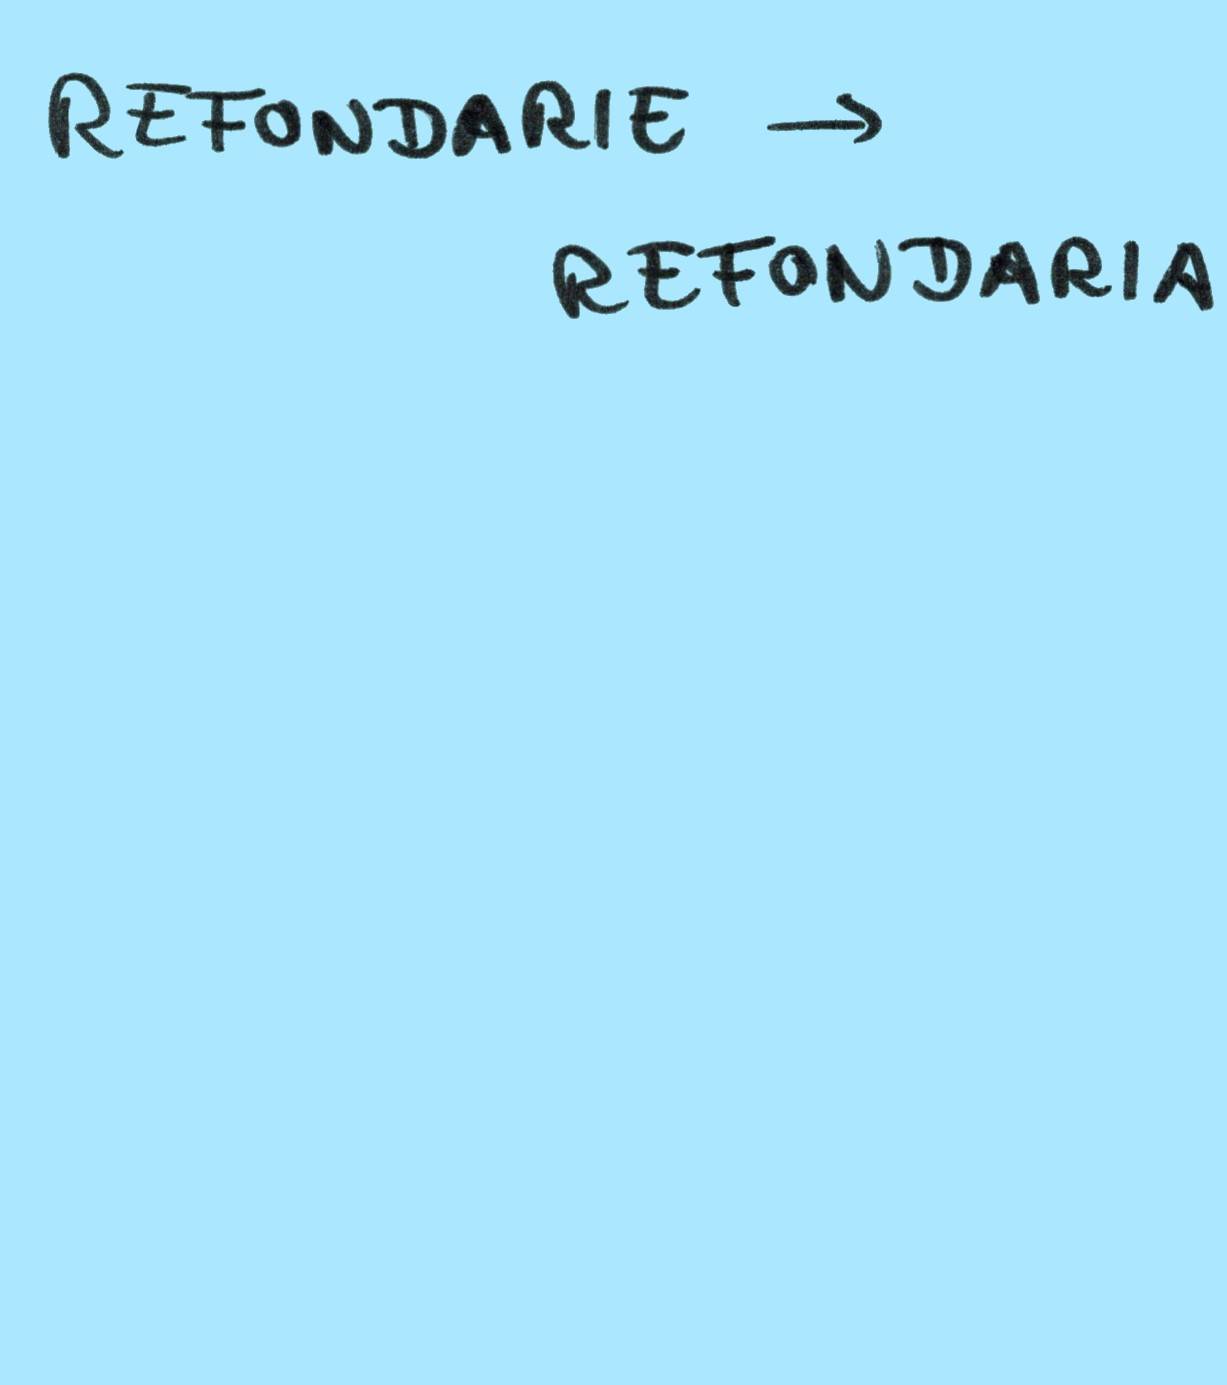 REFONDARIE →
REFONDARIA